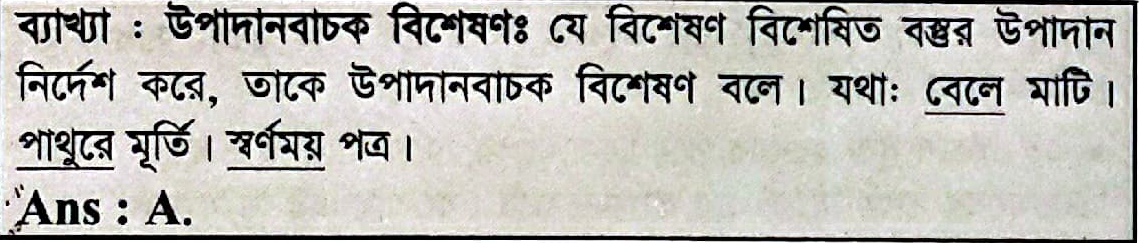 ব্যাখ্যা : উপাদানবাচক বিশেষণঃ যে বিশেষণ বিশেষিত বস্তুর উপাদান
নির্দেশ করে, তাকে উপাদানবাচক বিশেষণ বলে। যথাঃ বেলে মাটি।
পাথুরে মূর্তি। স্বর্ণময় পত্র।
Ans : A.